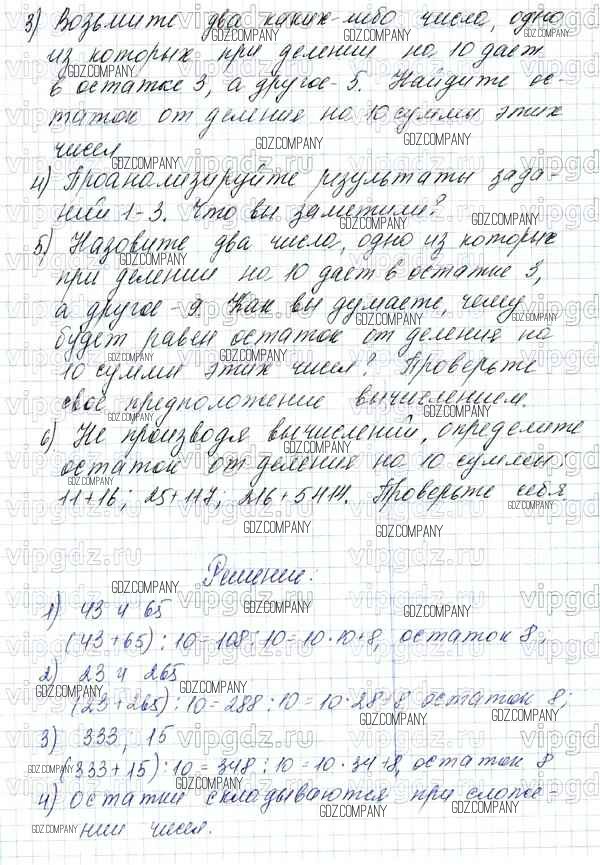 3) Возьмите два каких-либо числа, одно
из которых при делении на 10 дает
в остатке 3, а другое - 5. Найдите ос-
таток от деления на 10 суммы этих
чисел
4) Проанализируйте результаты зада-
ний 1-3. Что вы заметили?
5) Назовите два числа, одно из которых
при делении на 10 дает в остатке 3,
а другое - 9. Как вы думаете, чему
будет равен остаток от деления на
10 суммы этих чисел? Проверьте
свое предположение вычислением.
6) Не производя вычислений, определите
остаток от деления на 10 суммы:
11+16; 25+117; 216+5414. Проверьте себя
Решение:
1) 43 и 65
(43+65):10=108:10=10·10+8, остаток 8;
2) 23 и 265
(23+265):10=288:10=10·28+8 остаток 8;
3) 333; 15
(333+15):10=348:10=10·34+8, остаток 8
4) остатки складываются при сложе-
нии чисел.